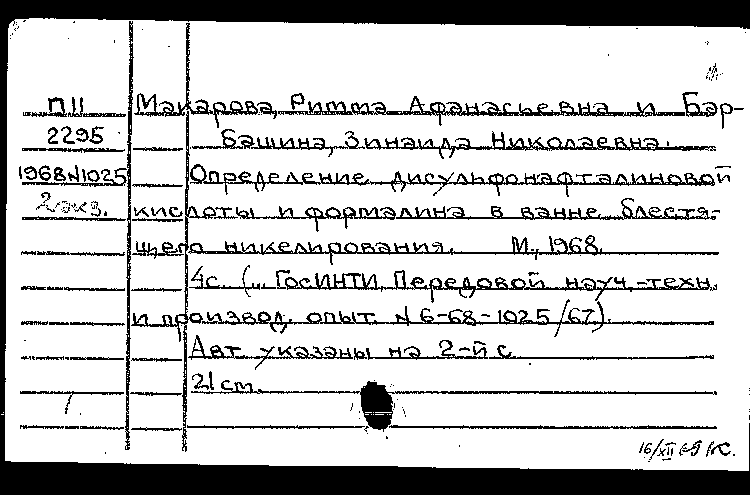 П11 Макарова, Римма Афанасьевна и Бар-
2295 башина, Зинаида Николаевна.
1968№1025 Определение дисульфонафталиновой
2 экз. кислоты и формалина в ванне блестя-
щего никелирования. М., 1968.
4с. (... ГосИНТИ, Передовой науч.-техн.
и производ. опыт. № 6-68-1025/67).
Авт. указаны на 2-й с.
21 см.
1.
16/XII 69